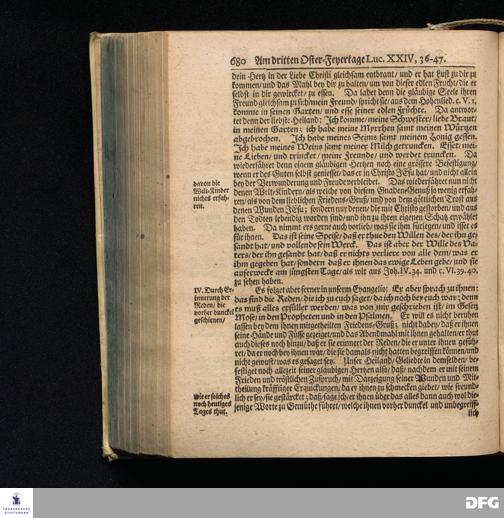 680 Am dritten Oster-Feyertage Luc. XXIV, 36-47.
dein Hertz in der Liebe Christi gleichsam entbrant/ und er hat Lust zu dir zu
kommen/ und das Mahl bey dir zu halten/ um von dieser edlen Frucht/ die er
selbst in dir gewircket/ zu essen. Da labet denn die gläubige Seele ihren
Freund gleichsam zu sich/ mein Freund/ spricht sie/ aus dem Hohenlied. c. V. 1,
komme in seinen Garten/ und esse seiner edlen Früchte. Da antwor-
tet denn der liebste Heiland: Ich komme/ meine Schwester/ liebe Braut/
in meinen Garten: ich habe meine Myrrhen samt meinen Würtzen
abgebrochen. Ich habe meines Seims samt meinem Honig gessen.
Ich habe meines Weins samt meiner Milch getruncken. Esset/ mei-
ne Lieben/ und trincket/ meine Freunde/ und werdet truncken. Da
wiederfähret denn einem gläubigen Hertzen noch eine grössere Befestigung/
wenn er des Guten selbst geniesset/ das er in Christo JEsu hat/ und nicht allein
bey der Verwunderung und Freude verbleibet. Das wiederfähret nun nicht
davon die
Welt-Kinder
nichts erfah-
ren.
denen Welt-Kindern/ als welche von diesem Gnaden-Genuß so wenig erfah-
ren/ als von dem lieblichen Friedens-Gruß/ und von dem göttlichen Trost aus
denen Wunden JEsu; sondern nur denen/ die mit Christo gestorben/ und aus
den Todten lebendig worden sind/ und ihn zu ihren eigenen Schatz erwählet
haben. Da nimmt ers gerne auch vorlieb/ was sie ihm fürlegen/ und isset es
für ihnen. Das ist seine Speise/ daß er thue den Willen des/ der ihn ge-
sandt hat/ und vollende sein Werck. Das ist aber der Wille des Va-
ters/ der ihn gesandt hat/ daß er nichts verliere von alle dem/ was er
ihm gegeben hat/ sondern daß er ihnen das ewige Leben gebe/ und sie
auferwecke am jüngsten Tage/ als wir aus Joh. IV. 34. und c. VI. 39. 40.
zu sehen haben.
IV. Durch Er-
innerung der
Reden/ die
vorher dunckel
geschienen/
Es folget aber ferner in unserm Evangelio: Er aber sprach zu ihnen:
das sind die Reden/ die ich zu euch sagte/ da ich noch bey euch war; denn
es muß alles erfüllet werden/ was von mir geschrieben ist/ im Gesetz
Mosis/ in den Propheten und in den Psalmen. Er will es nicht beruhen
lassen bey dem ihnen mitgetheilten Friedens-Gruß; nicht dabey/ daß er ihnen
seine Hände und Füsse gezeiget/ und das Abendmahl mit ihnen gehalten/ er thut
auch dieses noch hinzu/ daß er sie erinnert der Reden/ die er unter ihnen gefüh-
ret/ da er noch bey ihnen war/ die sie damals nicht hatten begreiffen können/ und
nicht gewust/ was es gesaget sey. Unser Heiland/ Geliebte in demselben/ be-
festiget noch allezeit seiner gläubigen Hertzen also/ daß/ nachdem er mit seinem
Frieden und tröstlichen Zuspruch/ mit Darzeigung seiner Wunden und Mit-
theilung kräfftiger Erquickungen/ da er ihnen zu schmecken giebet/ wie freund-
wie er solches
noch heutiges
Tages thut.
lich er sey/ sie gestärcket; daß/ sage ich/ er ihnen über das alles dann auch wol die-
jenige Worte zu Gemüthe führet/ welche ihnen vorher dunckel und unbegreiff-
lich
FRANCKESCHE
STIFTUNGEN
DFG